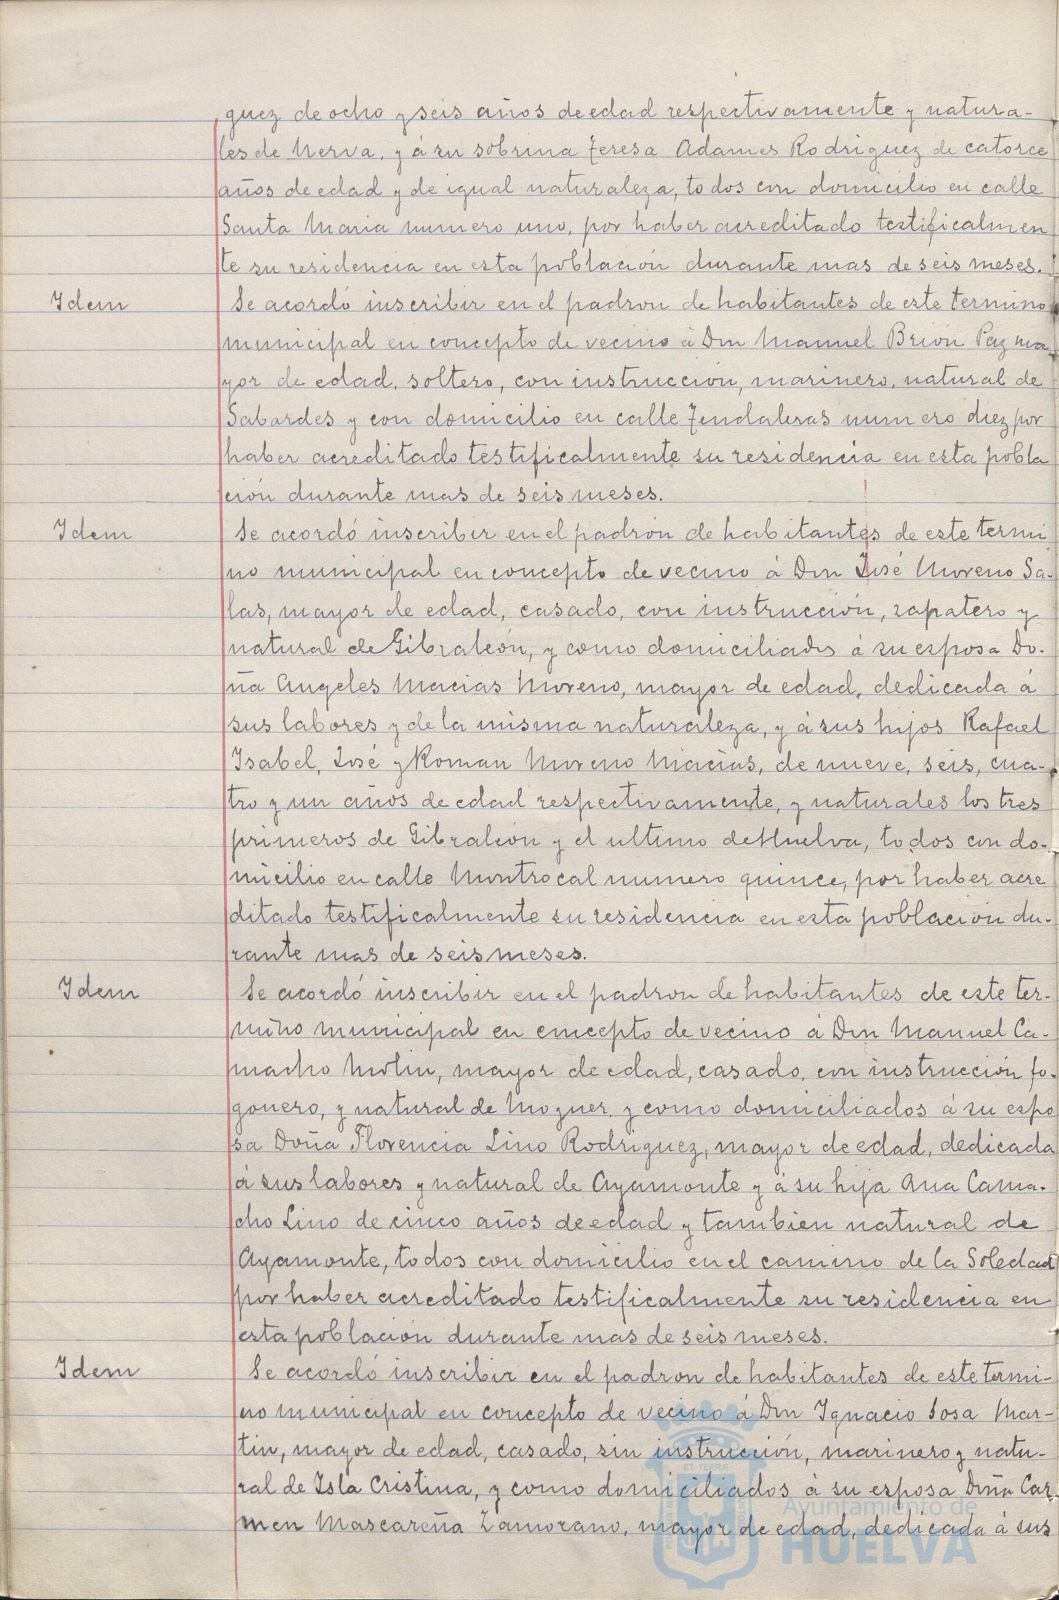 guez de ocho y seis años de edad respectivamente y natura-
les de Nerva, y á su sobrina Teresa Adames Rodriguez de catorce
años de edad y de igual naturaleza, todos con domicilio en calle
Santa Maria numero uno, por haber acreditado testificalmen
te su residencia en esta población durante mas de seis meses.
Idem
Se acordó inscribir en el padron de habitantes de este termino
municipal en concepto de vecino á Don Manuel Brión Paz ma-
yor de edad, soltero, con instrucción, marinero, natural de
Sabardes y con domicilio en calle Tendaleras numero diez por
haber acreditado testificalmente su residencia en esta pobla
ción durante mas de seis meses.
Idem
Se acordó inscribir en el padrón de habitantes de este termi
no municipal en concepto de vecino á Don José Moreno Sa-
las, mayor de edad, casado, con instrucción, zapatero y
natural de Gibraleón, y como domiciliados á su esposa Do-
ña Angeles Macias Moreno, mayor de edad, dedicada á
sus labores y de la misma naturaleza, y á sus hijos Rafael
Isabel, José y Roman Moreno Macias, de nueve, seis, cua-
tro y un años de edad respectivamente, y naturales los tres
primeros de Gibraleón y el ultimo de Huelva, todos con do-
micilio en calle Montrocal numero quince, por haber acre
ditado testificalmente su residencia en esta población du-
rante mas de seis meses.
Idem
Se acordó inscribir en el padron de habitantes de este ter-
mino municipal en concepto de vecino á Don Manuel Ca-
macho Molin, mayor de edad, casado, con instrucción fo-
gonero, y natural de Moguer, y como domiciliados á su espo
sa Doña Florencia Lino Rodriguez, mayor de edad, dedicada
á sus labores y natural de Ayamonte y á su hija Ana Cama-
cho Lino de cinco años de edad y tambien natural de
Ayamonte, todos con domicilio en el camino de la Soledad
por haber acreditado testificalmente su residencia en
esta población durante mas de seis meses.
Idem
Se acordó inscribir en el padron de habitantes de este termi-
no municipal en concepto de vecino á Don Ignacio Sosa Mar-
tin, mayor de edad, casado, sin instrucción, marinero y natu-
ral de Isla Cristina, y como domiciliados á su esposa Doña Car
men Mascareña Zamorano, mayor de edad, dedicada á sus
Ayuntamiento de
HUELVA